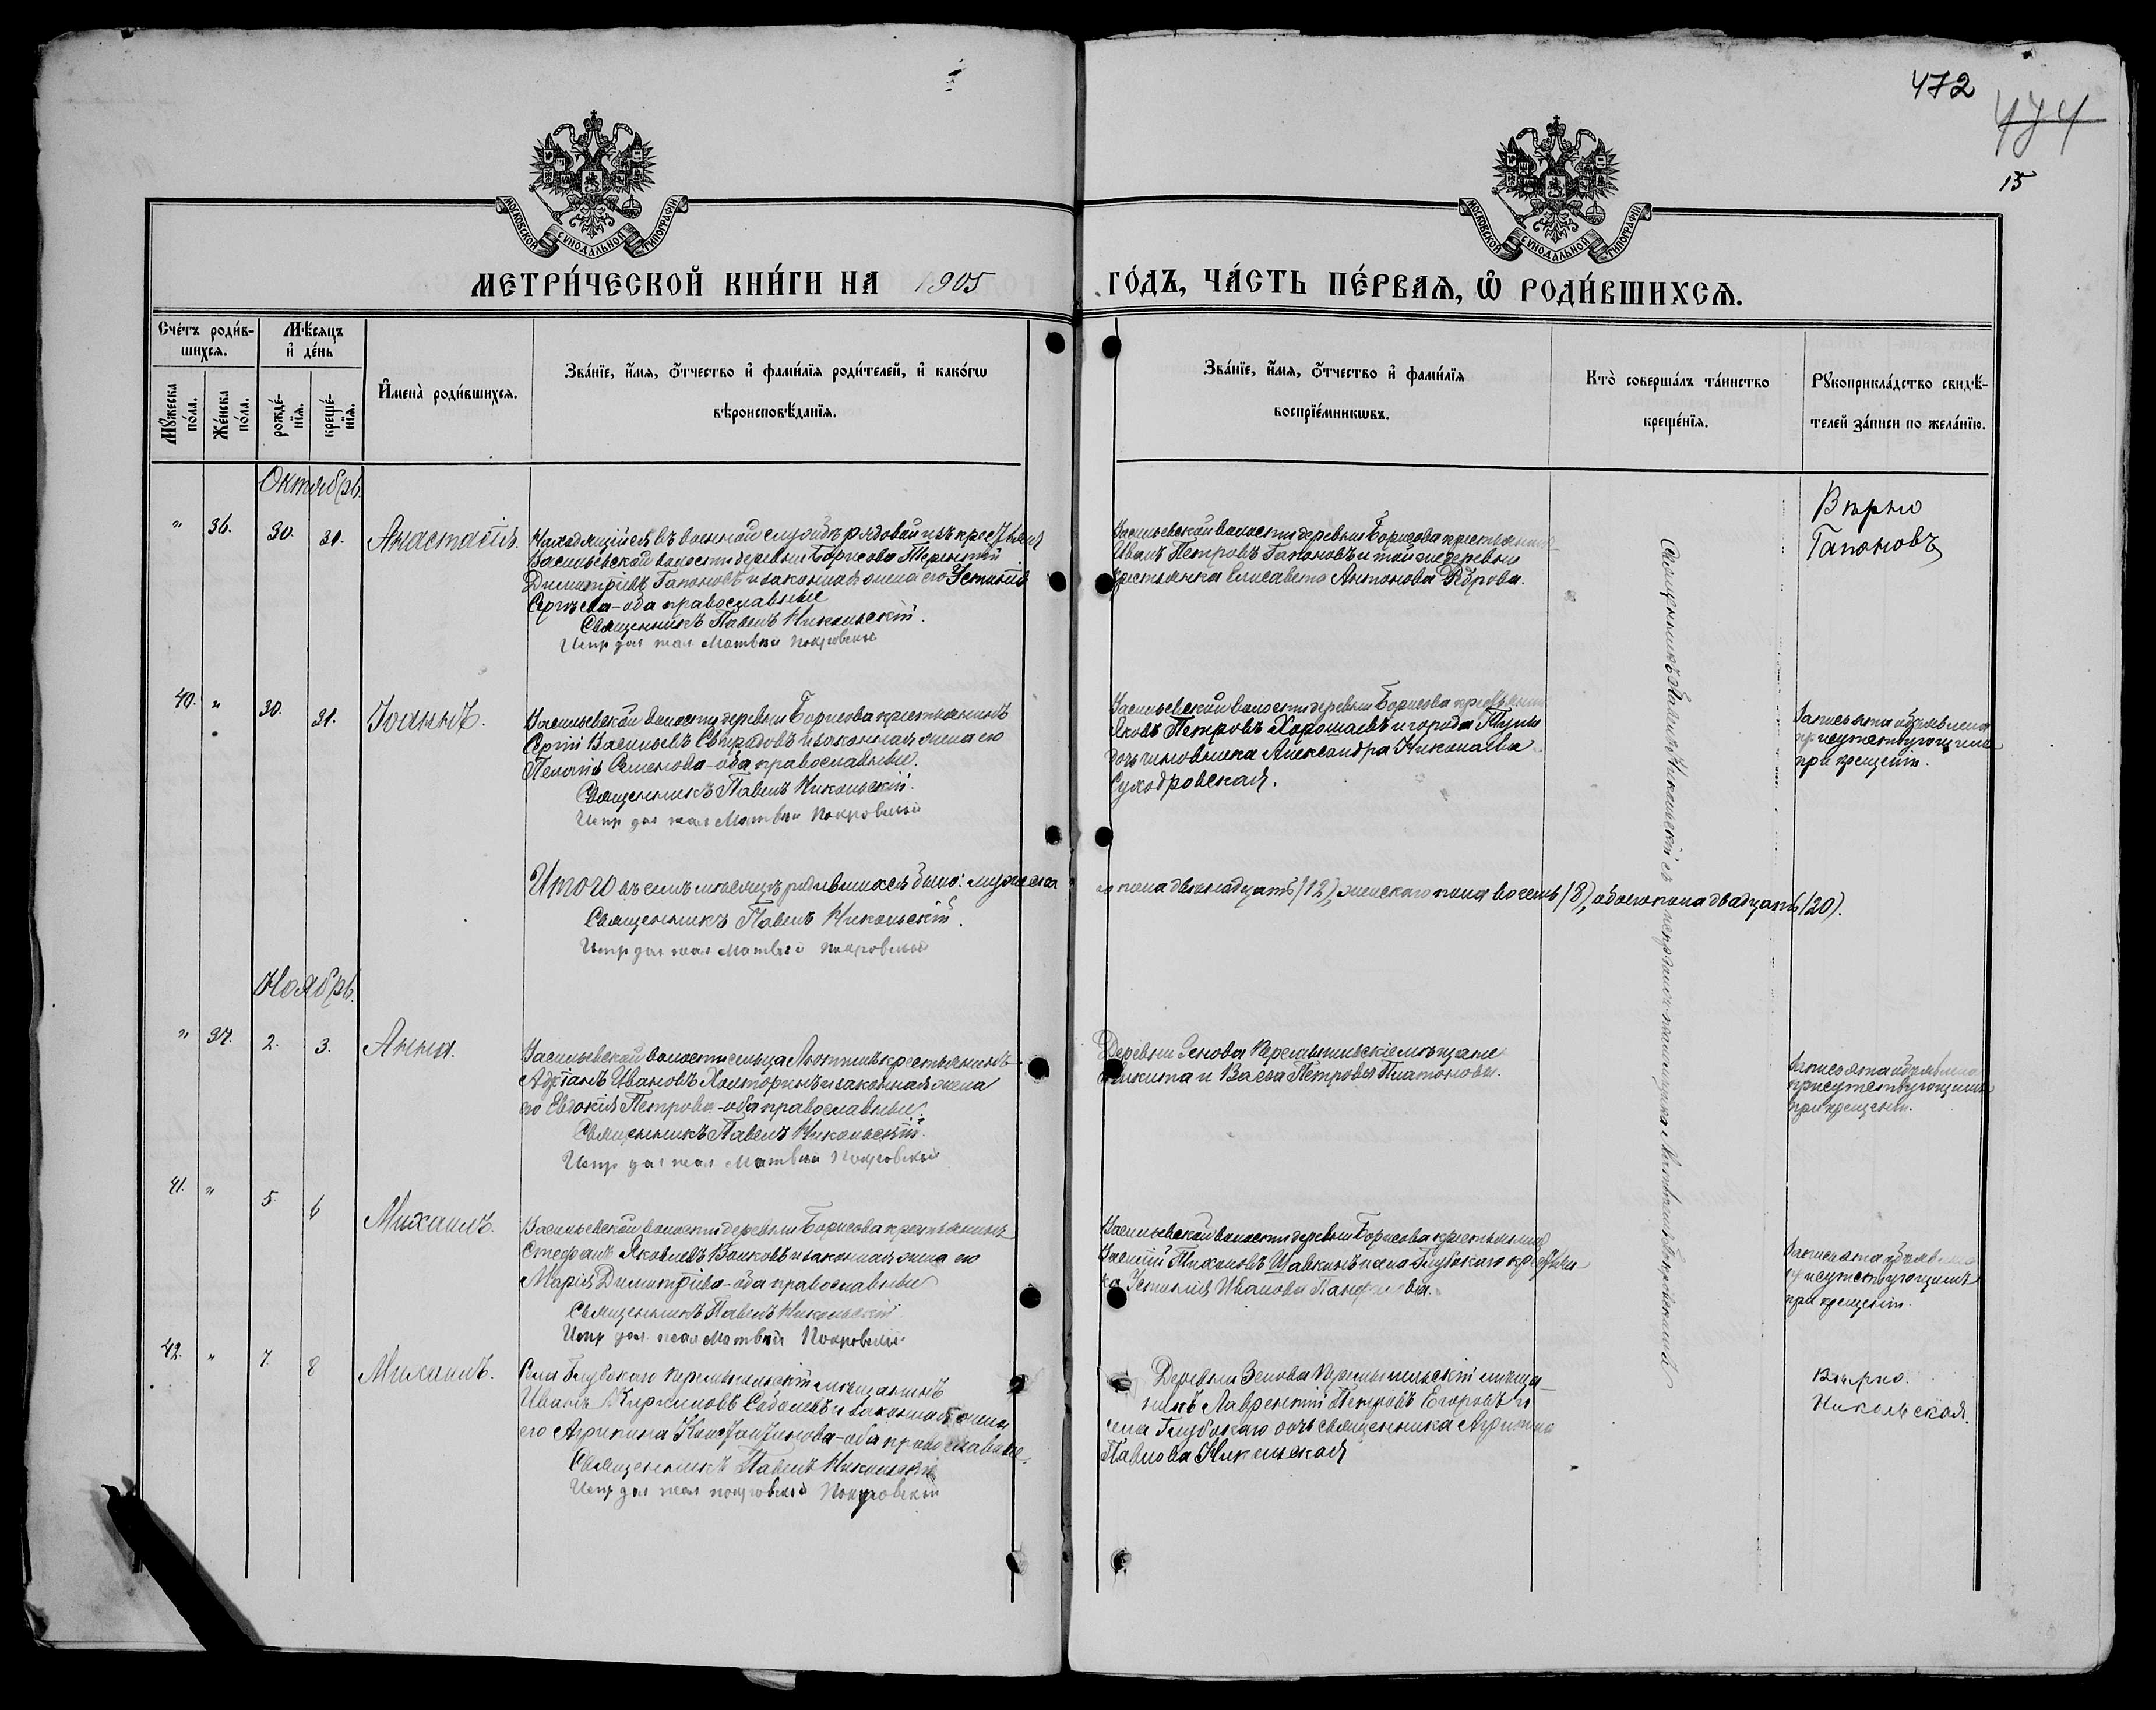 472
474
15
МОСКОВСКОЙ СУНОДАЛЬНОЙ ТИПОГРАФІИ
МОСКОВСКОЙ СУНОДАЛЬНОЙ ТИПОГРАФІИ
МЕТРИ́ЧЕСКОЙ КНИ́ГИ НА 1905
ГО́ДЪ, ЧА́СТЬ ПЕ́РВАѦ, Ѡ҆ РОДИ́ВШИХСѦ.
Сче́тъ роди́в-
шихсѧ.
Мѣ́сѧцъ
и҆ де́нь
Мꙋ́жеска
по́ла.
Же́нска
по́ла.
рожде́-
нїѧ.
креще́-
нїѧ.
И҆мена̀ роди́вшихсѧ.
Зва́нїе, и҆́мѧ, ѻ҆́тчество и҆ фами́лїѧ роди́телей, и҆ како́гѡ
вѣроисповѣ́данїѧ.
Зва́нїе, и҆́мѧ, ѻ҆́тчество и҆ фами́лїѧ
воспрїе́мникѡвъ.
Кто̀ соверша́лъ та́инство
креще́нїѧ.
Рꙋкоприкла́дство свидѣ́-
телей за́писи по жела́нїю.
Октябрь.
" 36. 30. 31. Анастасія.
Находящійся въ военной службѣ рядовой изъ крестьянъ
Васильевской волости деревни Борисова Терентій
Димитріевъ Гапоновъ и законная жена его Устинія
Сергѣева - оба православные
Священникъ Павелъ Никольскій.
Испр дол псал Матвѣй Покровскій
Васильевской волости деревни Борисова крестьянинъ
Иванъ Петровъ Гапоновъ и той же деревни
крестьянка Елисавета Антонова
Вѣрно
Гапоновъ
40. " 30. 31. Іоаннъ.
Васильевской волости деревни Борисова крестьянинъ
Сергій Васильевъ и законная жена его
Пелагія Семенова - оба православные.
Священникъ Павелъ Никольскій.
Испр дол псал Матвѣй Покровскій
Васильевской волости деревни Борисова крестьянинъ
Яковъ Петровъ Хорошаевъ и города Тулы
дочь чиновника Александра Николаева
Суходровская.
Запись эта объявлена
присутствующимъ
при крещеніи.
Итого въ семъ мѣсяцѣ родившихся было: мужеска
го пола двѣнадцать (12), женскаго пола восемь (8), обоего пола двадцать (20).
Священникъ Павелъ Никольскій.
Испр дол псал Матвѣй Покровскій
Ноябрь.
" 37. 2. 3. Анна.
Васильевской волости сельца крестьянинъ
Адріанъ Ивановъ и законная жена
его Евдокія Петрова - оба православные.
Священникъ Павелъ Никольскій.
Испр дол псал Матвѣй Покровскій
Деревни Зенова Перемышльскіе мѣщане
Никита и Васса Петровы Платоновы.
Запись эта объявлена
присутствующимъ
при крещеніи.
41. " 5. 6 Михаилъ.
Васильевской волости деревни Борисова крестьянинъ
Стефанъ Яковлевъ Волковъ и законная жена его
Марія Димитріева - оба православные
Священникъ Павелъ Никольскій
Испр дол псал Матвѣй Покровскій
Васильевской волости деревни Борисова крестьянинъ
Василій Тихоновъ Шавкинъ и села Глубокаго крестьян
ка Устинія Иванова Панфилова.
Запись эта объявлена
присутствующимъ
при крещеніи.
42. " 7. 8 Михаилъ.
Села Глубокаго Перемышльскій мѣщанинъ
Иванъ Соболевъ и законная жена
его Агрипина Константинова - оба православные.
Священникъ Павелъ Никольскій
Испр дол псал Покровскій Покровскій
Деревни Зенова Перемышльскій мѣща-
нинъ Лаврентій Петровъ Егоровъ и
села Глубокаго дочь священника Агрипина
Павлова Никольская
Вѣрно.
Никольская.
Священникъ Павелъ Никольскій съ псаломщикомъ Матвѣемъ Покровскимъ